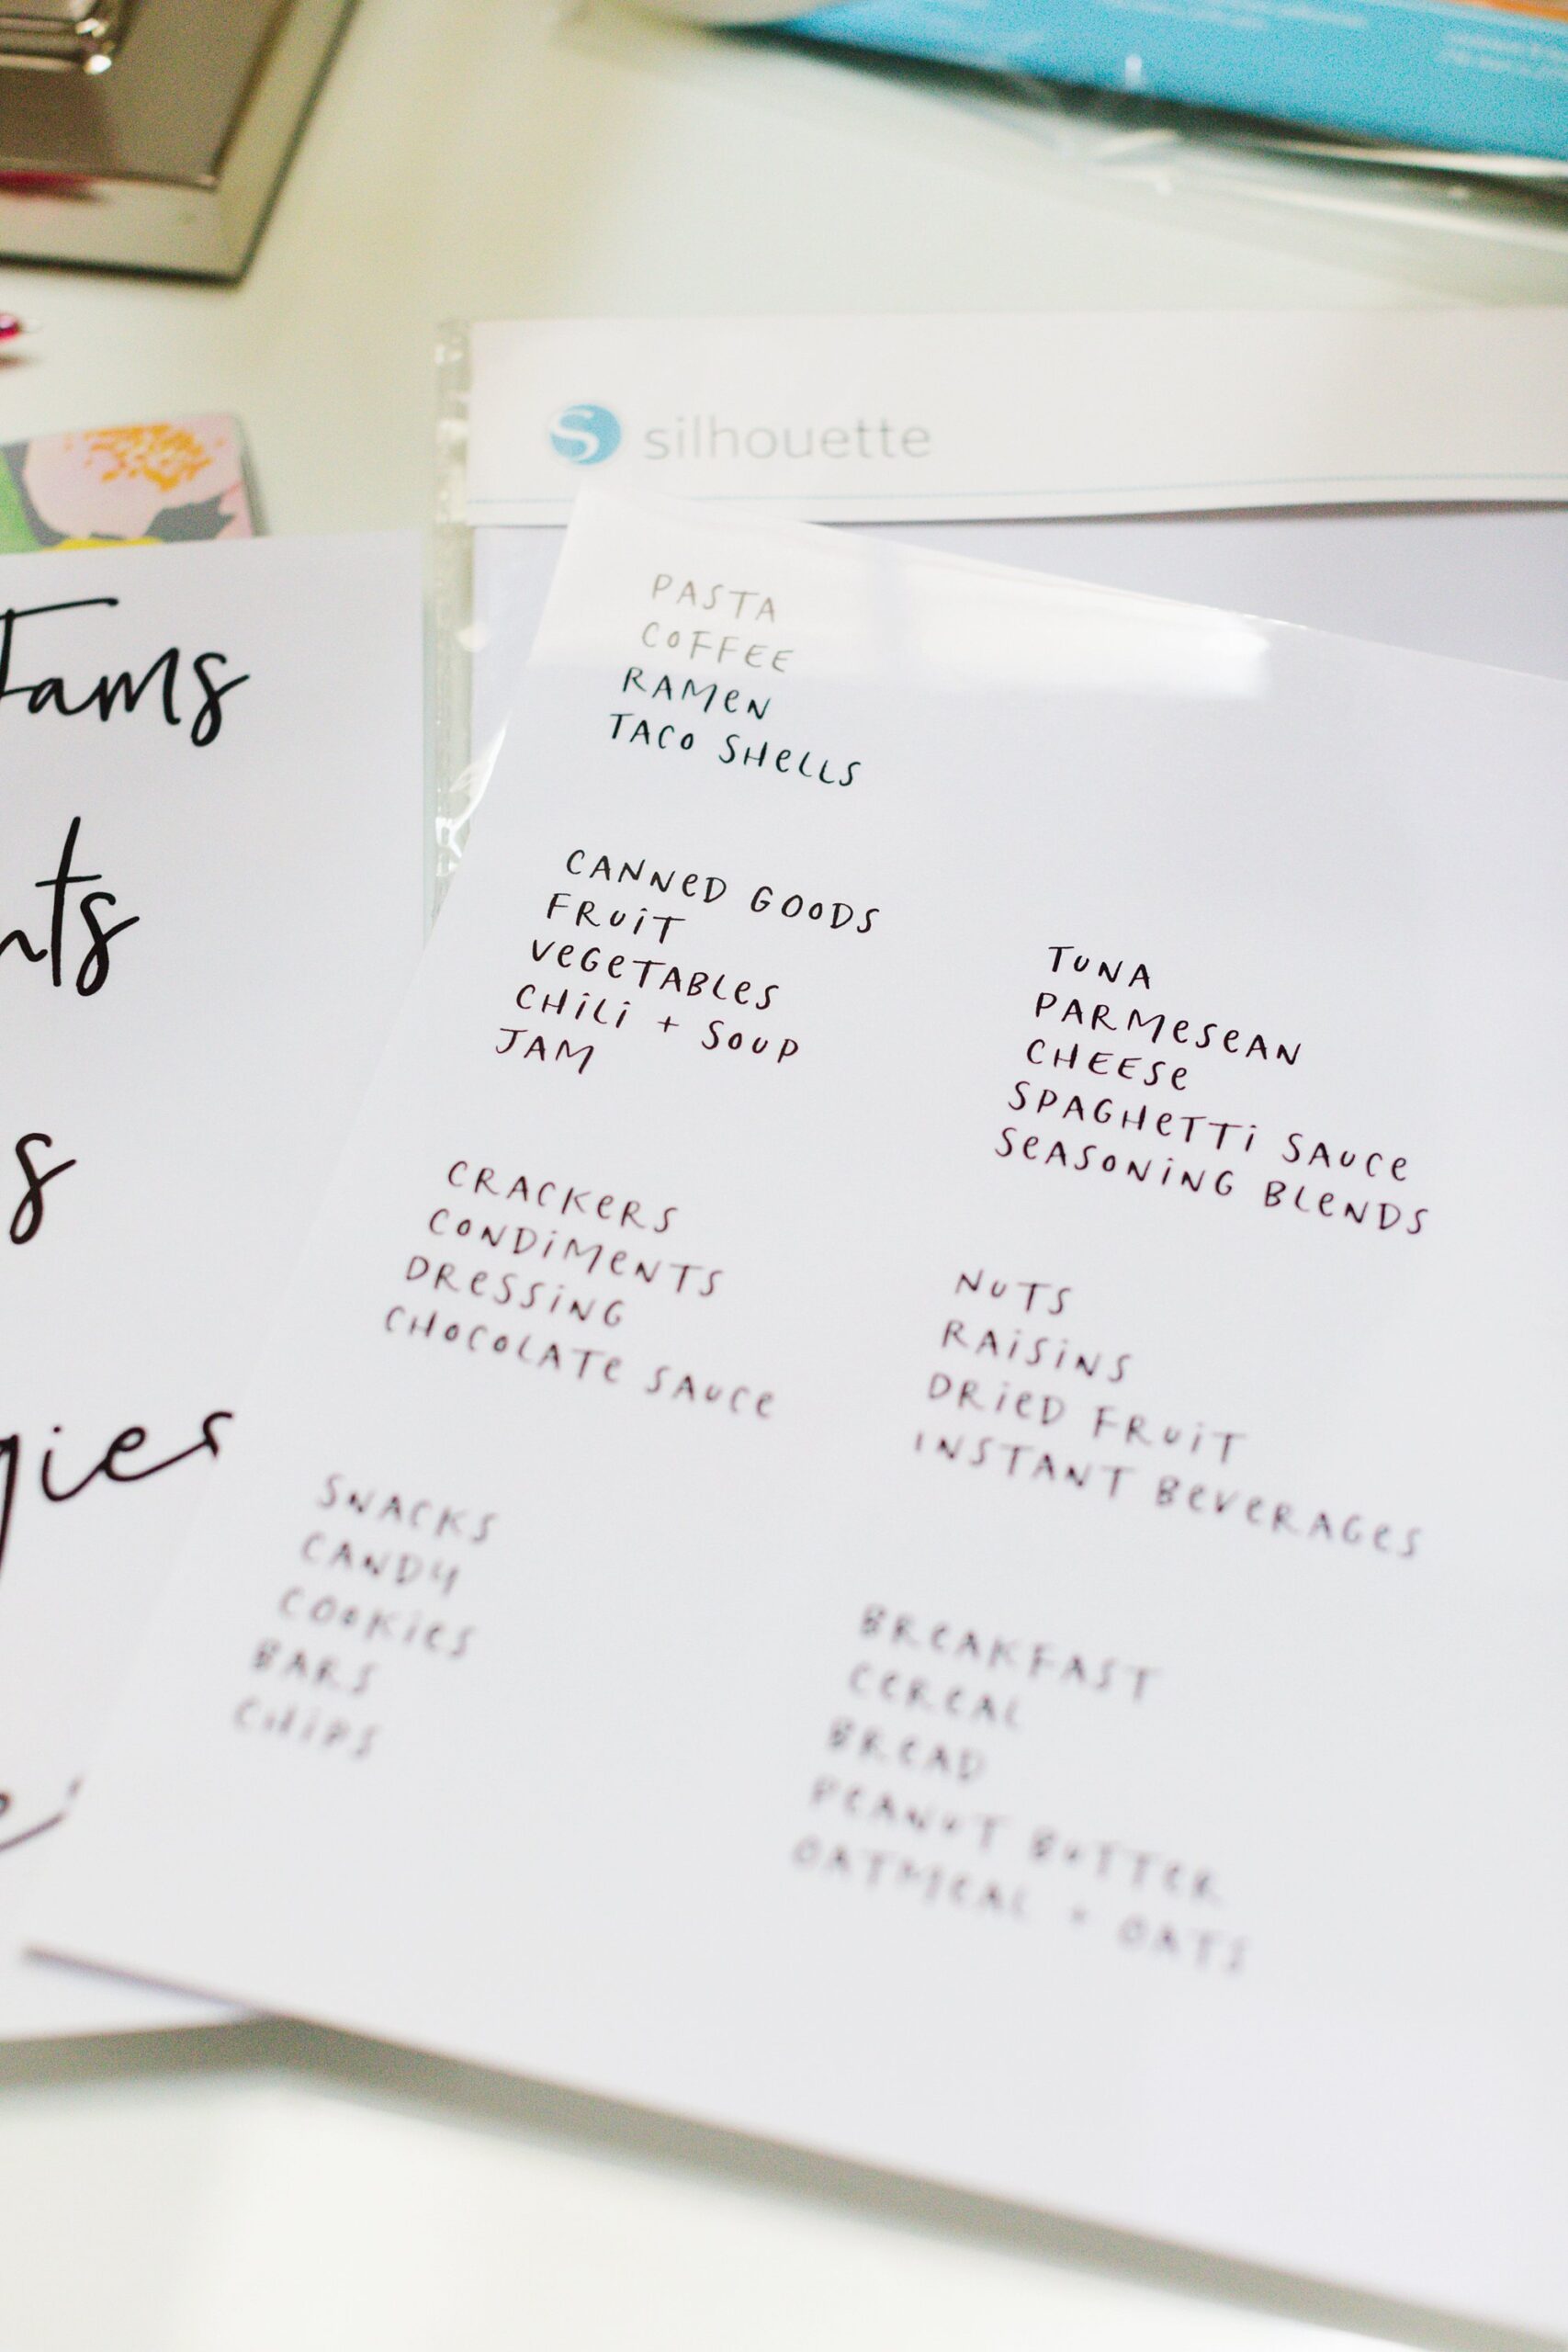 silhouette
PASTA
COFFEE
RAMEN
TACO SHELLS
CANNED GOODS
FRUIT
VEGETABLES
CHILI + SOUP
JAM
CRACKERS
CONDIMENTS
DRESSING
CHOCOLATE SAUCE
SNACKS
CANDY
COOKIES
BARS
CHIPS
TUNA
PARMESEAN
CHEESE
SPAGHETTI SAUCE
SEASONING BLENDS
NUTS
RAISINS
DRIED FRUIT
INSTANT BEVERAGES
BREAKFAST
CEREAL
BREAD
PEANUT BUTTER
OATMEAL + OATS